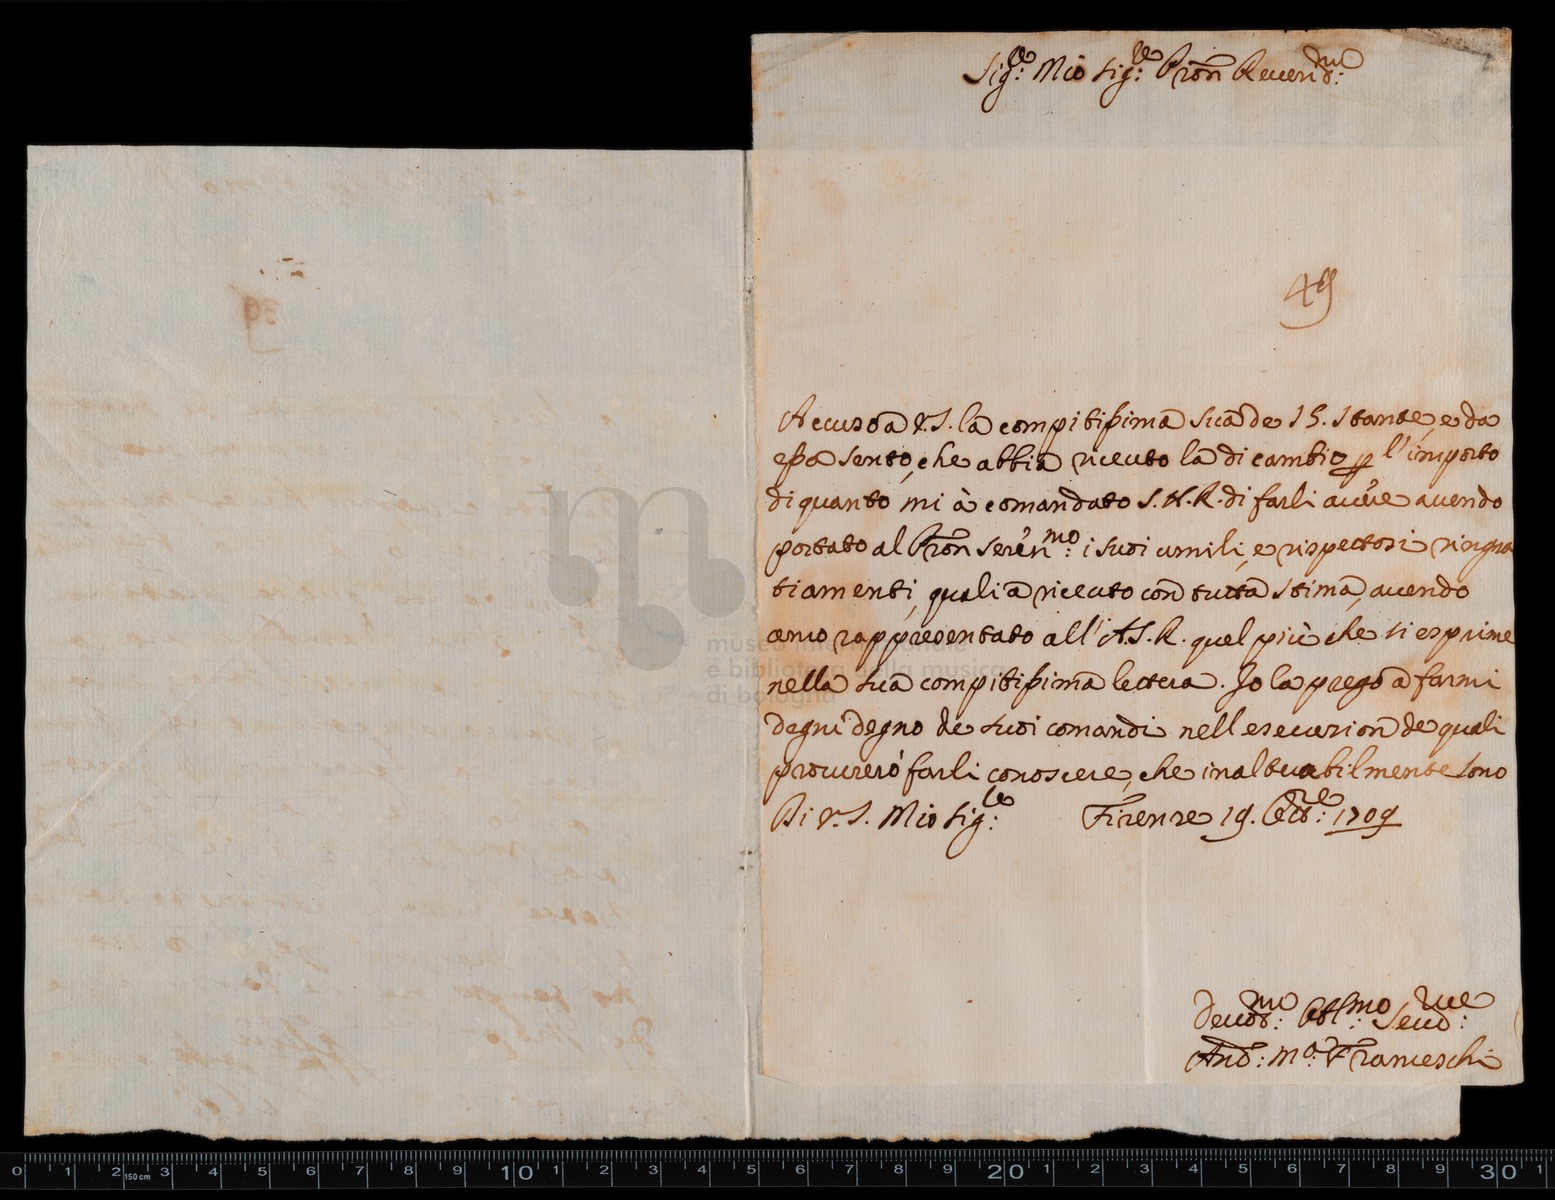 Sig:re Mio Sig:re Pron Reverend:mo
49
39
Accuso a V.S. la compitissima sua de 15. stante, e da
essa sento, che abbia riceuto la di cambio p l'importo
di quanto mi à comandato S.A.R. di farli avere avendo
portato al Pron Seren:mo i suoi umili, e rispettosi ringra
tiamenti, quali à riceuto con tutta stima, avendo
anco rappresentato all'A.S.R. quel più che si esprime
nella sua compitissima lettera. Io la prego a farmi
degno de suoi comandi nell esecuzion de quali
procurerò farli conoscere, che inalterabilmente sono
Di V.S. Mio Sig:re Firenze 19. Ott:re 1709
Devot:mo Obl:mo Serv:re
And: Ma: Franceschi
museo internazionale
e biblioteca della musica
di bologna
0 1 2 150 cm 3 4 5 6 7 8 9 10 1 2 3 4 5 6 7 8 9 20 1 2 3 4 5 6 7 8 9 30 1